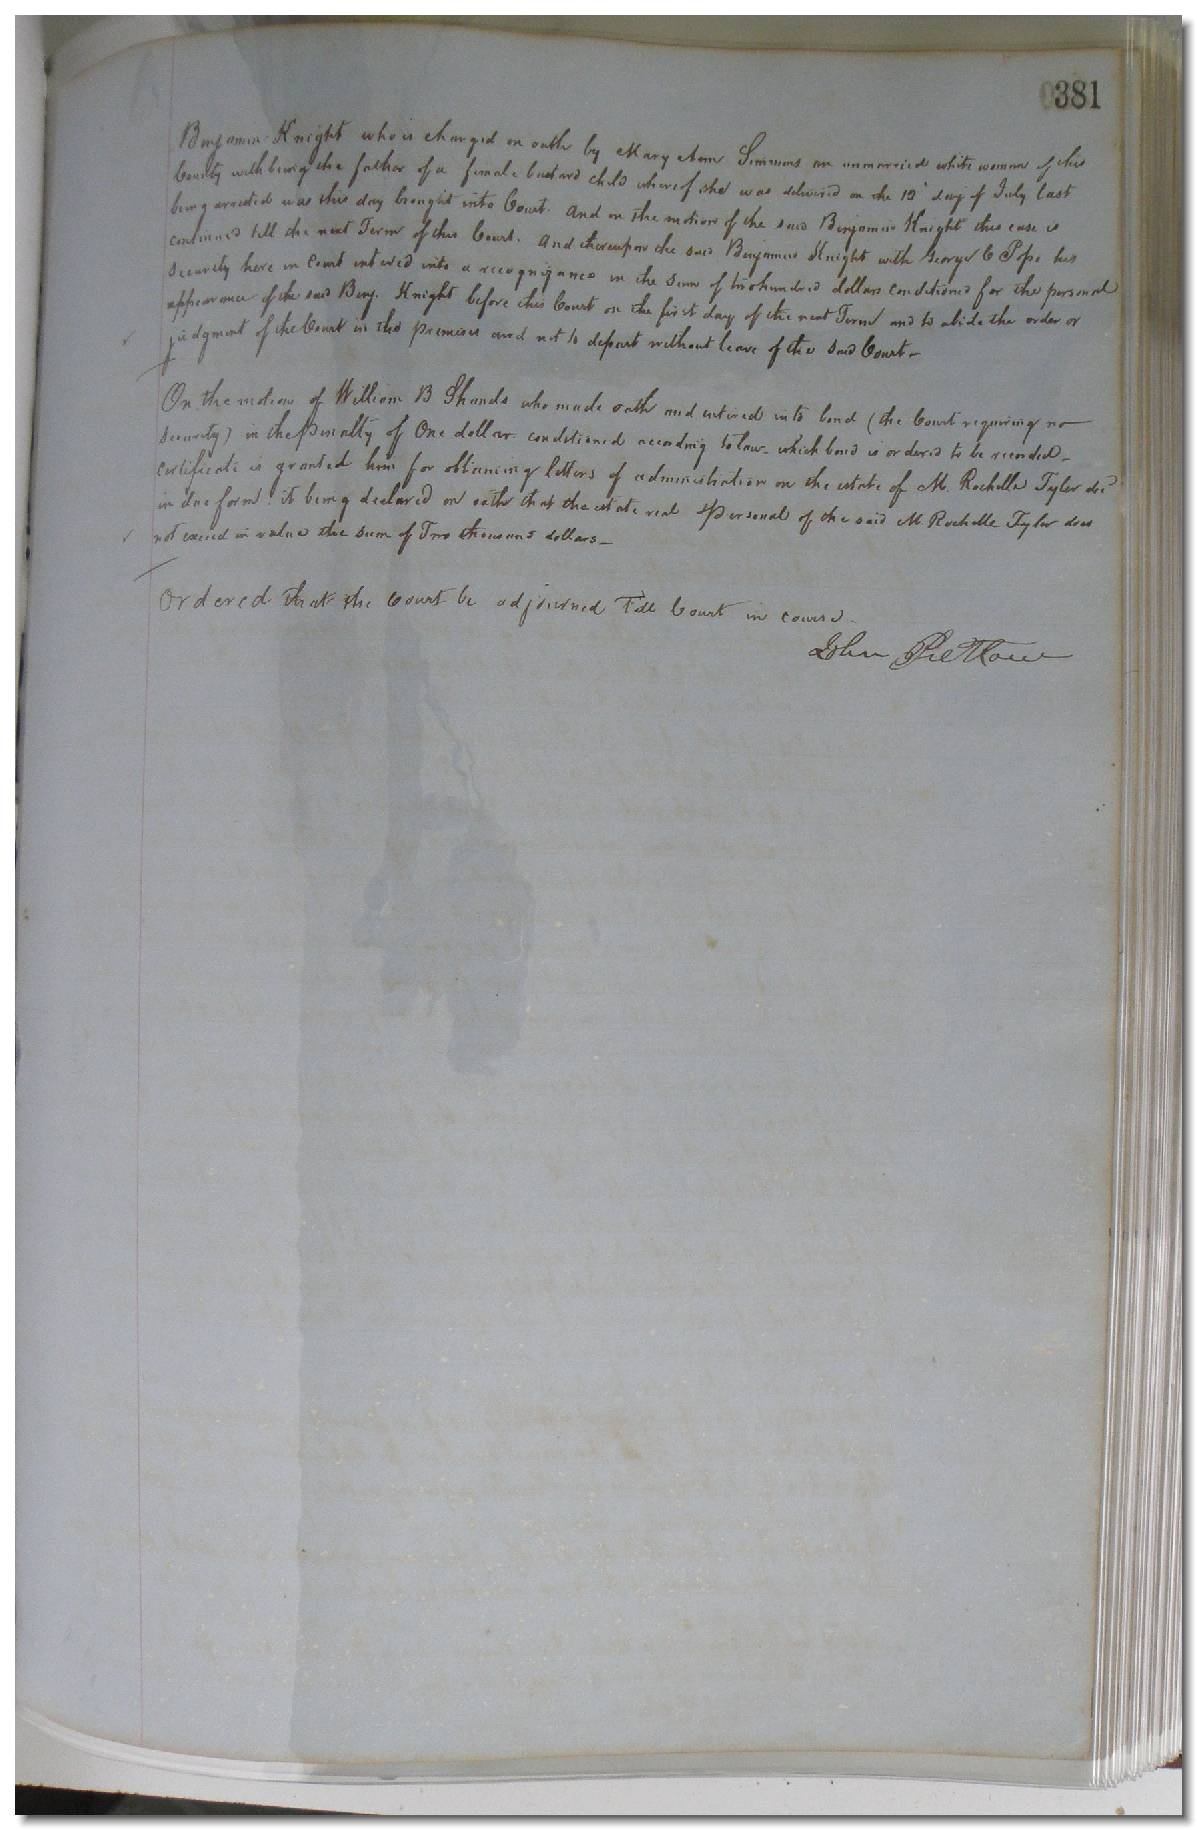 0381
Benjamin Knight who is charged on oath by Mary Ann Simmons an unmarried white woman of this
County with being the father of a female bastard child whereof she was delivered on the 19th day of July last
being arrested was this day brought into Court. And on the motion of the said Benjamin Knight this case is
continued till the next Term of this Court. And thereupon the said Benjamin Knight with George C Pope his
security here in Court entered into a recognizance in the sum of two hundred dollars conditioned for the personal
appearance of the said Benj. Knight before this Court on the first day of the next Term and to abide the order or
judgment of the Court in the premises and not to depart without leave of the said Court—
On the motion of William B Shands who made oath and entered into bond (the Court requiring no
security) in the penalty of One dollar conditioned according to law— which bond is ordered to be recorded—
certificate is granted him for obtaining letters of administration on the estate of M. Rochelle Tyler decd
in due form. it being declared on oath that the estate real & personal of the said M Rochelle Tyler does
not exceed in value the sum of Two thousand dollars—
Ordered that the Court be adjourned Till Court in course.
John Pretlow